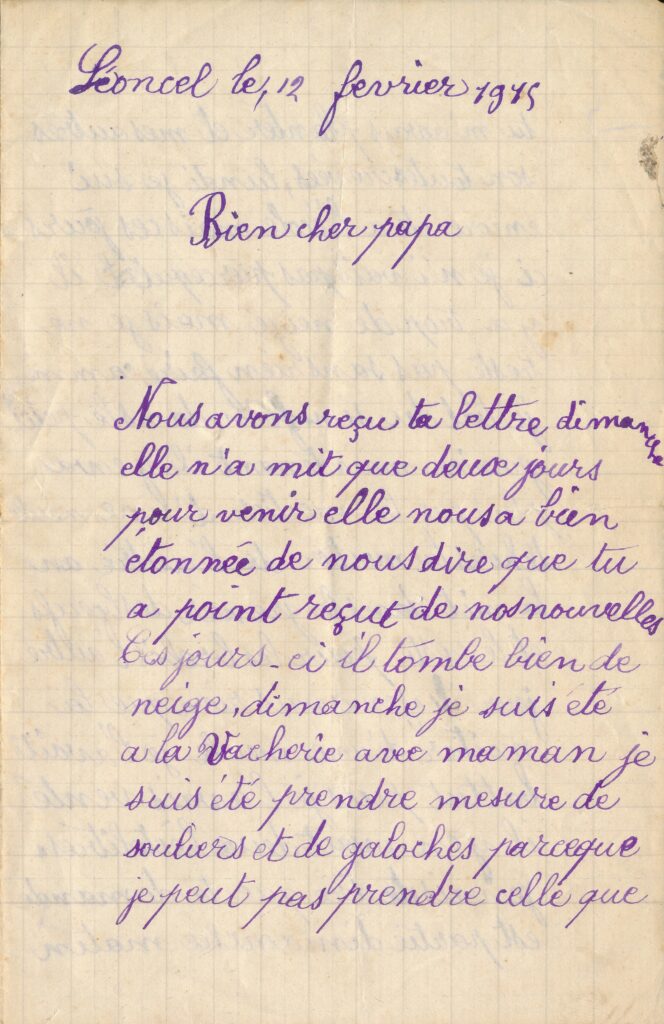 Léoncel le, 12 fevrier 1915
Bien cher papa
Nous avons reçu ta lettre dimanche
elle n'a mit que deux jours
pour venir elle nous a bien
étonnée de nous dire que tu
a point reçut de nos nouvelles
Ces jours-ci il tombe bien de
neige, dimanche je suis été
a la Vacherie avec maman je
suis été prendre mesure de
souliers et de galoches parceque
je peut pas prendre celle que